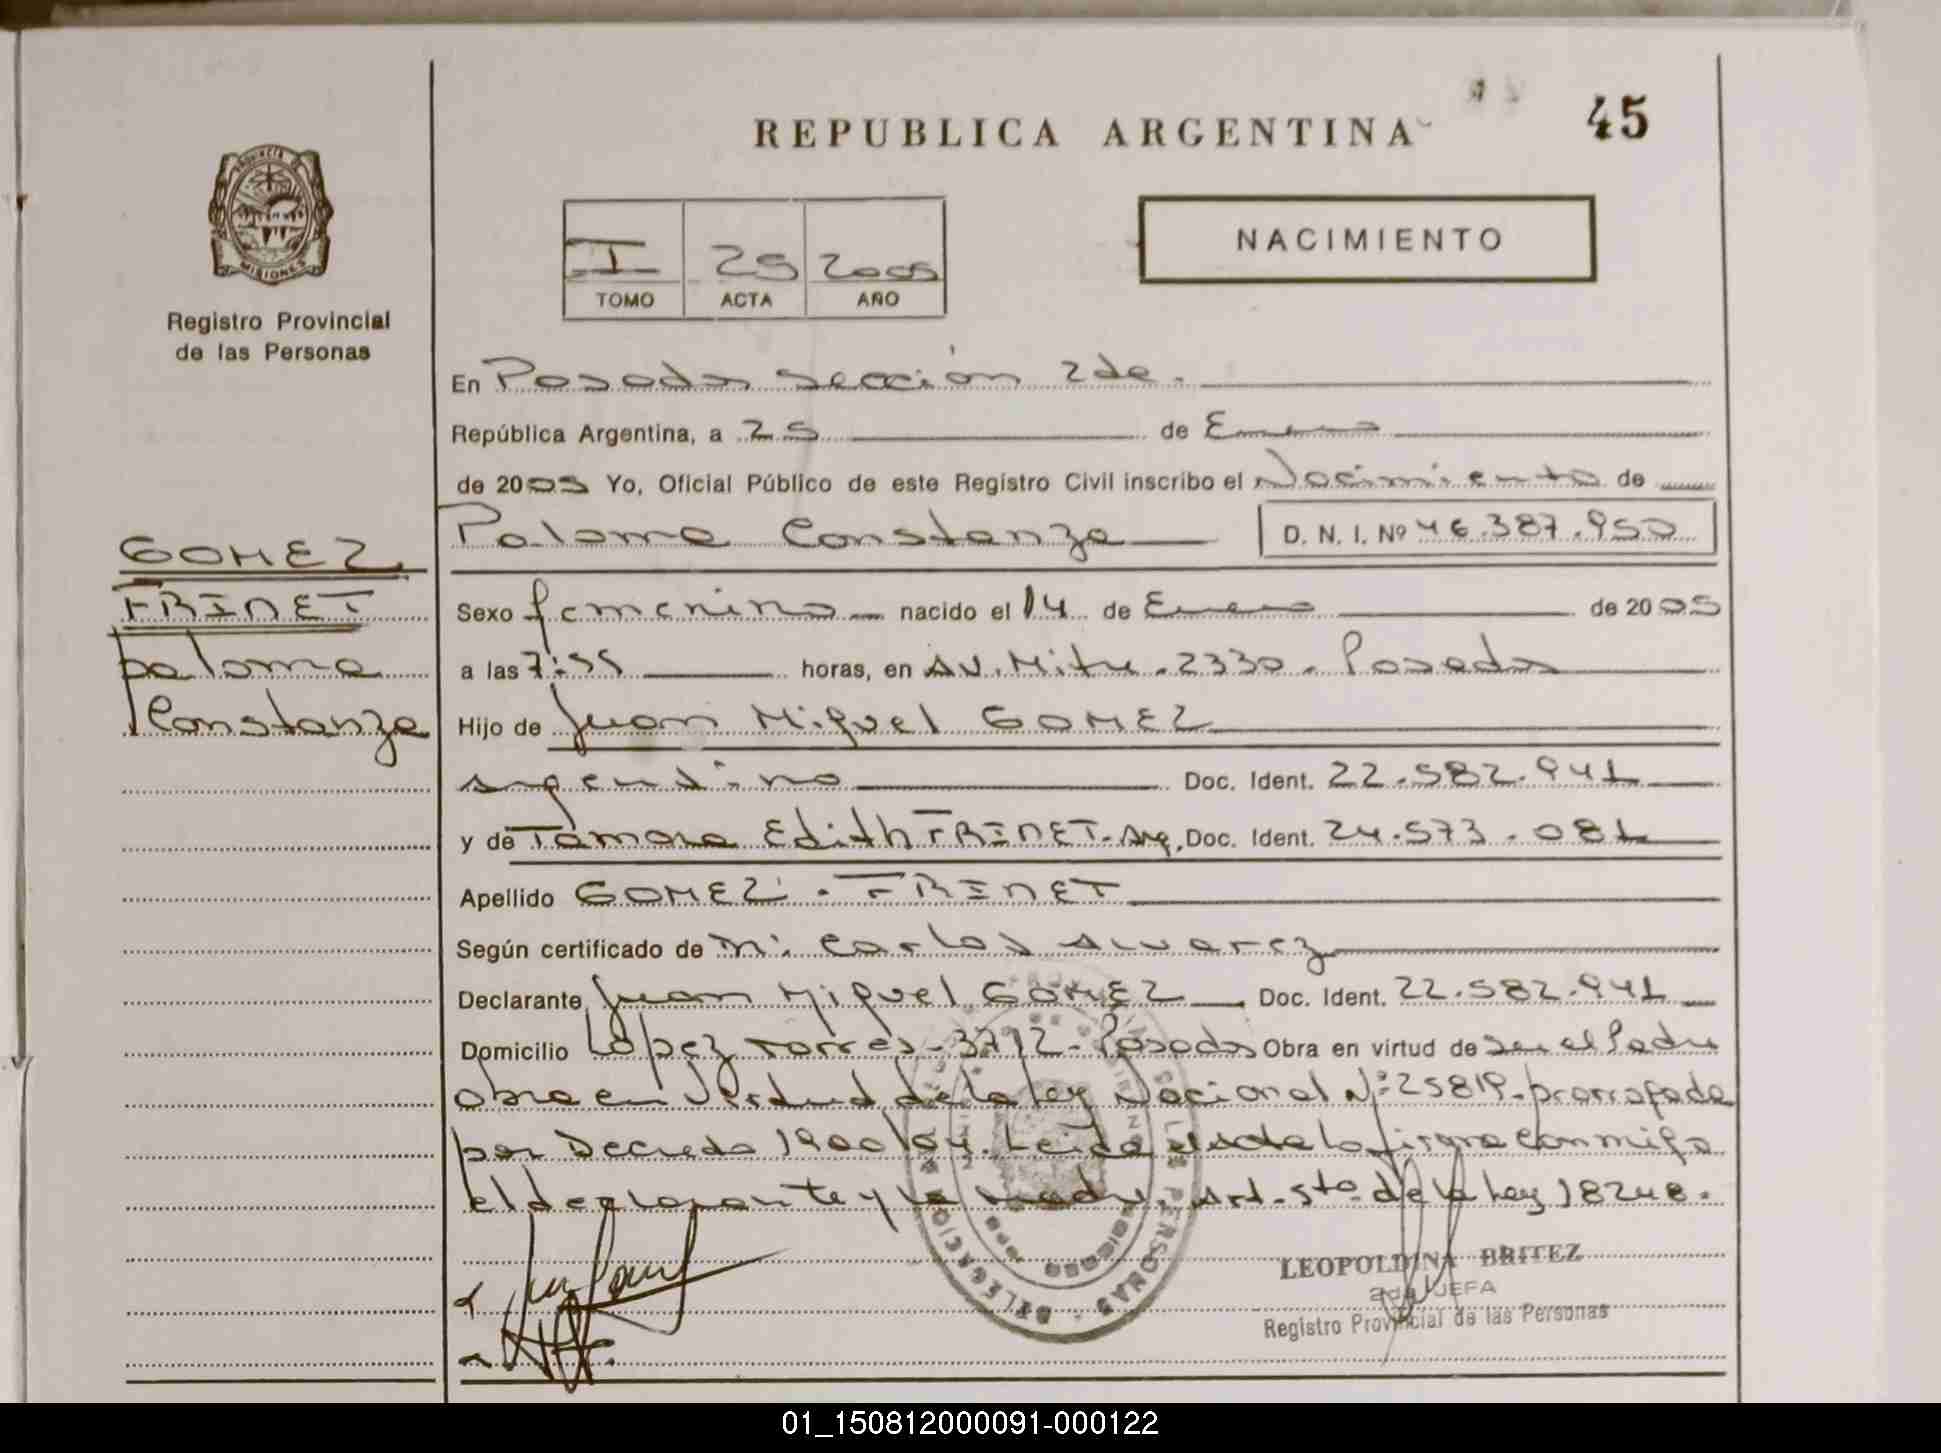 REPUBLICA ARGENTINA
45
PROVINCIA DE
MISIONES
Registro Provincial
de las Personas
I 25 2005
TOMO ACTA AÑO
NACIMIENTO
En Posadas sección 2da.
República Argentina, a 25 de Enero
de 2005 Yo, Oficial Público de este Registro Civil inscribo el Nacimiento de
Paloma Constanza D. N. I. Nº 46.387.950
GOMEZ
FRINET
Paloma
Constanza
Sexo femenino nacido el 14 de Enero de 2005
a las 7:55 horas, en AV. Mitre. 2330. Posadas
Hijo de Juan Miguel GOMEZ
argentino Doc. Ident. 22.582.941
y de Tamara Edith FRINET. Arg. Doc. Ident. 24.573.081
Apellido GOMEZ. FRINET
Según certificado de M. Carlos Alvarez
Declarante Juan Miguel GOMEZ Doc. Ident. 22.582.941
Domicilio López Torres. 3712. Posadas Obra en virtud de ser el Padre
obra en virtud de la ley Nacional Nº 25819. prorrogada
por Decreto 1900/04. Leída el acta la firma conmigo
el declarante y la madre. Art. 5to. de la Ley 18248.
LEOPOLDINA BRITEZ
2da JEFA
Registro Provincial de las Personas
01_150812000091-000122